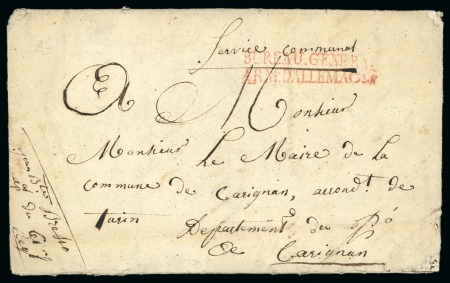 Service Communal
BUREAU GENERAL
ARM. D'ALLEMAGNE
A Monsieur
Monsieur Le Maire de La
commune de Carignan, arrond.t de
turin Departement du Pô
A Carignan